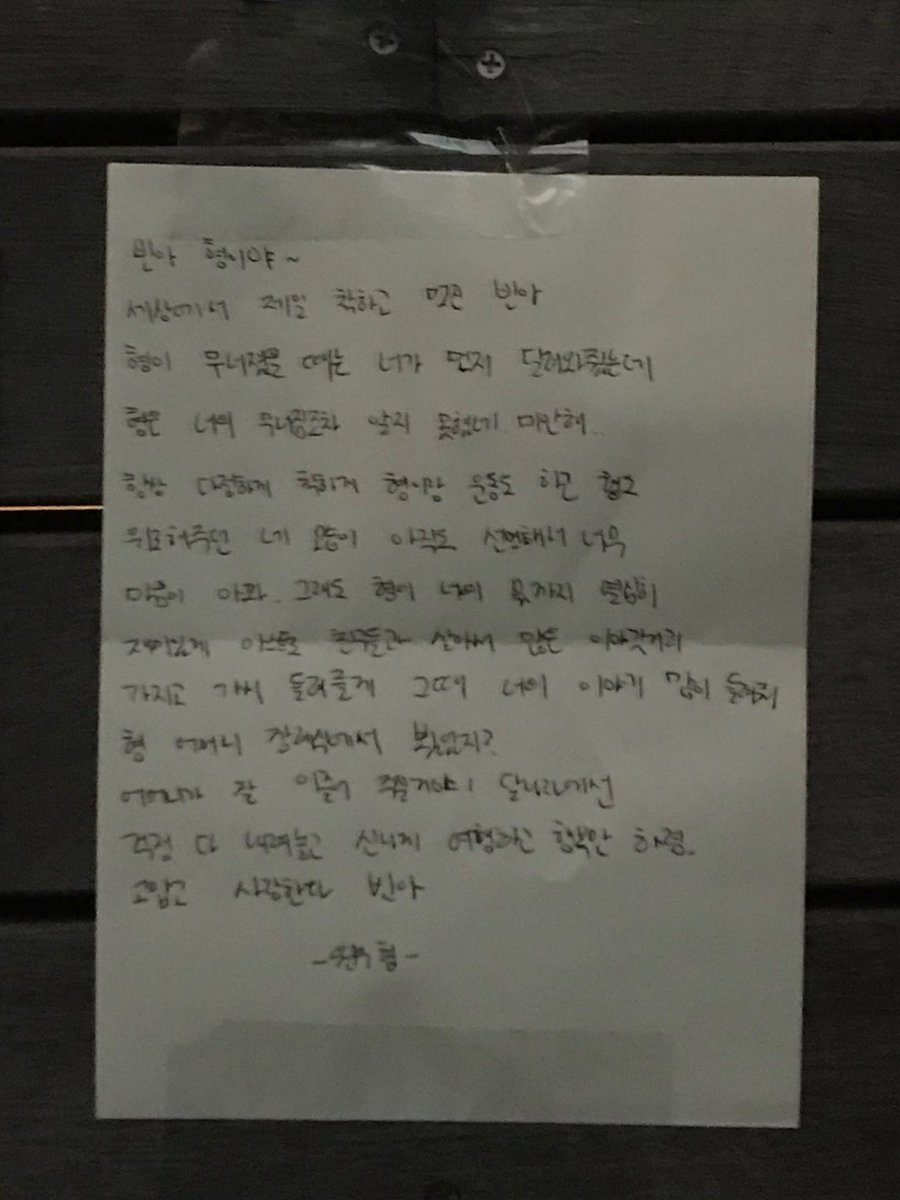 빈아 형이야~
세상에서 제일 착하고 멋진 빈아
형이 무너졌을 때는 너가 먼저 달려와줬는데
형은 너의 무너짐조차 알지 못했네 미안해..
항상 다정하게 착하게 형이랑 운동도 하고
위로해주던 네 모습이 아직도 선명해서 너무
마음이 아파. 그래도 형이 너의 몫까지 열심히
재미있게 아스트로 친구들과 살아서 많은 이야깃거리
가지고 가서 들려줄게 그때 너의 이야기 많이 들려줘
형 어머니 장례식에서 뵈었지?
어머니가 잘 이끌어 주실거야! 달나라에선
걱정 다 내려놓고 신나게 여행하고 행복만 하렴.
고맙고 사랑한다 빈아